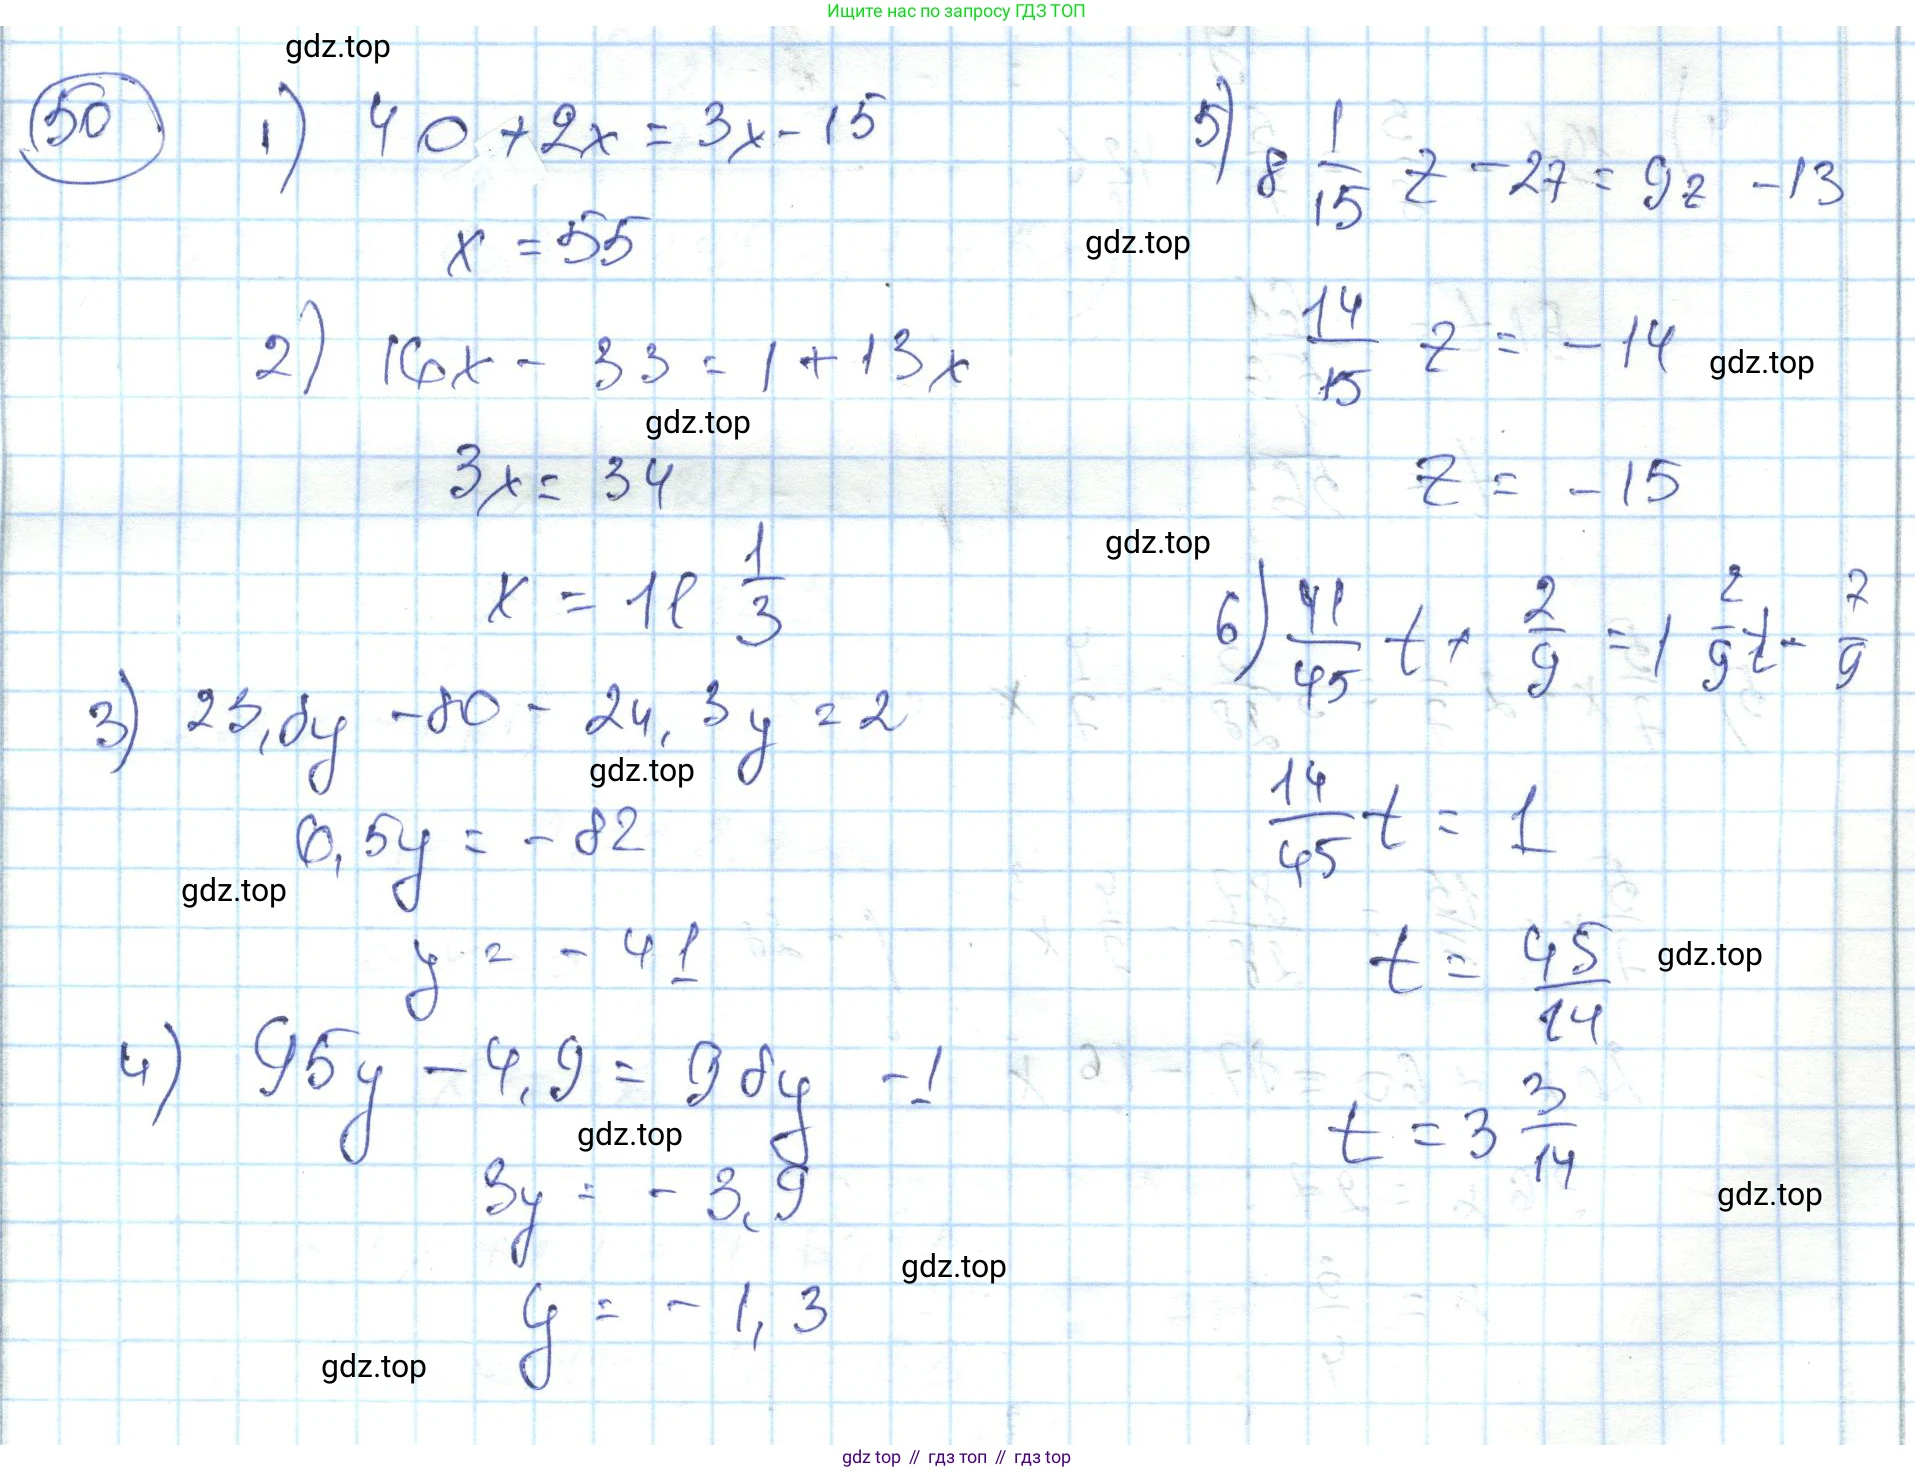 Ищите нас по запросу ГДЗ ТОП
gdz.top
50
1) 40 + 2x = 3x - 15
x = 55
2) 16x - 33 = 1 + 13x
gdz.top
3x = 34
x = 11 1/3
3) 23,8y - 80 - 24,3y = 2
gdz.top
0,5y = - 82
gdz.top
y = - 41
4) 95y - 4,9 = 98y - 1
gdz.top
3y = - 3,9
gdz.top
y = - 1,3
gdz.top
5) 8 1/15 z - 27 = 9z - 13
gdz.top
14/15 z = - 14
gdz.top
z = - 15
gdz.top
6) 41/45 t + 2/9 = 1 2/9 t - 7/9
14/45 t = 1
t = 45/14
gdz.top
t = 3 3/14
gdz.top
gdz.top // гдз топ // гдз top